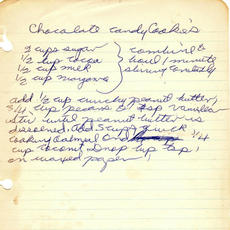 Chocolate Candy Cookies
2 cups sugar
½ cup cocoa
½ cup milk
½ cup margarine
combine &
boil 1 minute
stirring constantly
add ½ cup crunchy peanut butter,
¼ cup pecans & tsp vanilla
stir until peanut butter is
dissolved. Add 3 cups quick
cooking oatmeal and 3/4
cup coconut Drop by tsp
on waxed paper